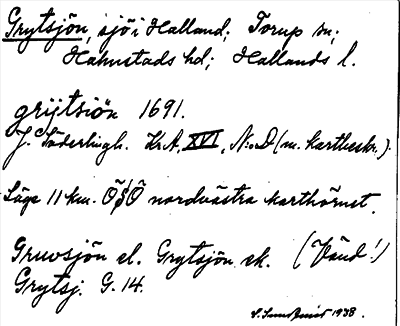 Grytsjön, sjö i Halland; Torup sn;
Halmstads hd; Hallands l.
grijtsiön 1691.
J. Söderlingh. Kr.A. XVI, N:o D (m. kartbeskr.).
Läge 11 km. ÖSÖ nordvästra karthörnet.
Gruvsjön el. Grytsjön ek. (Vänd!)
Grytsj. G. 14.
1938.